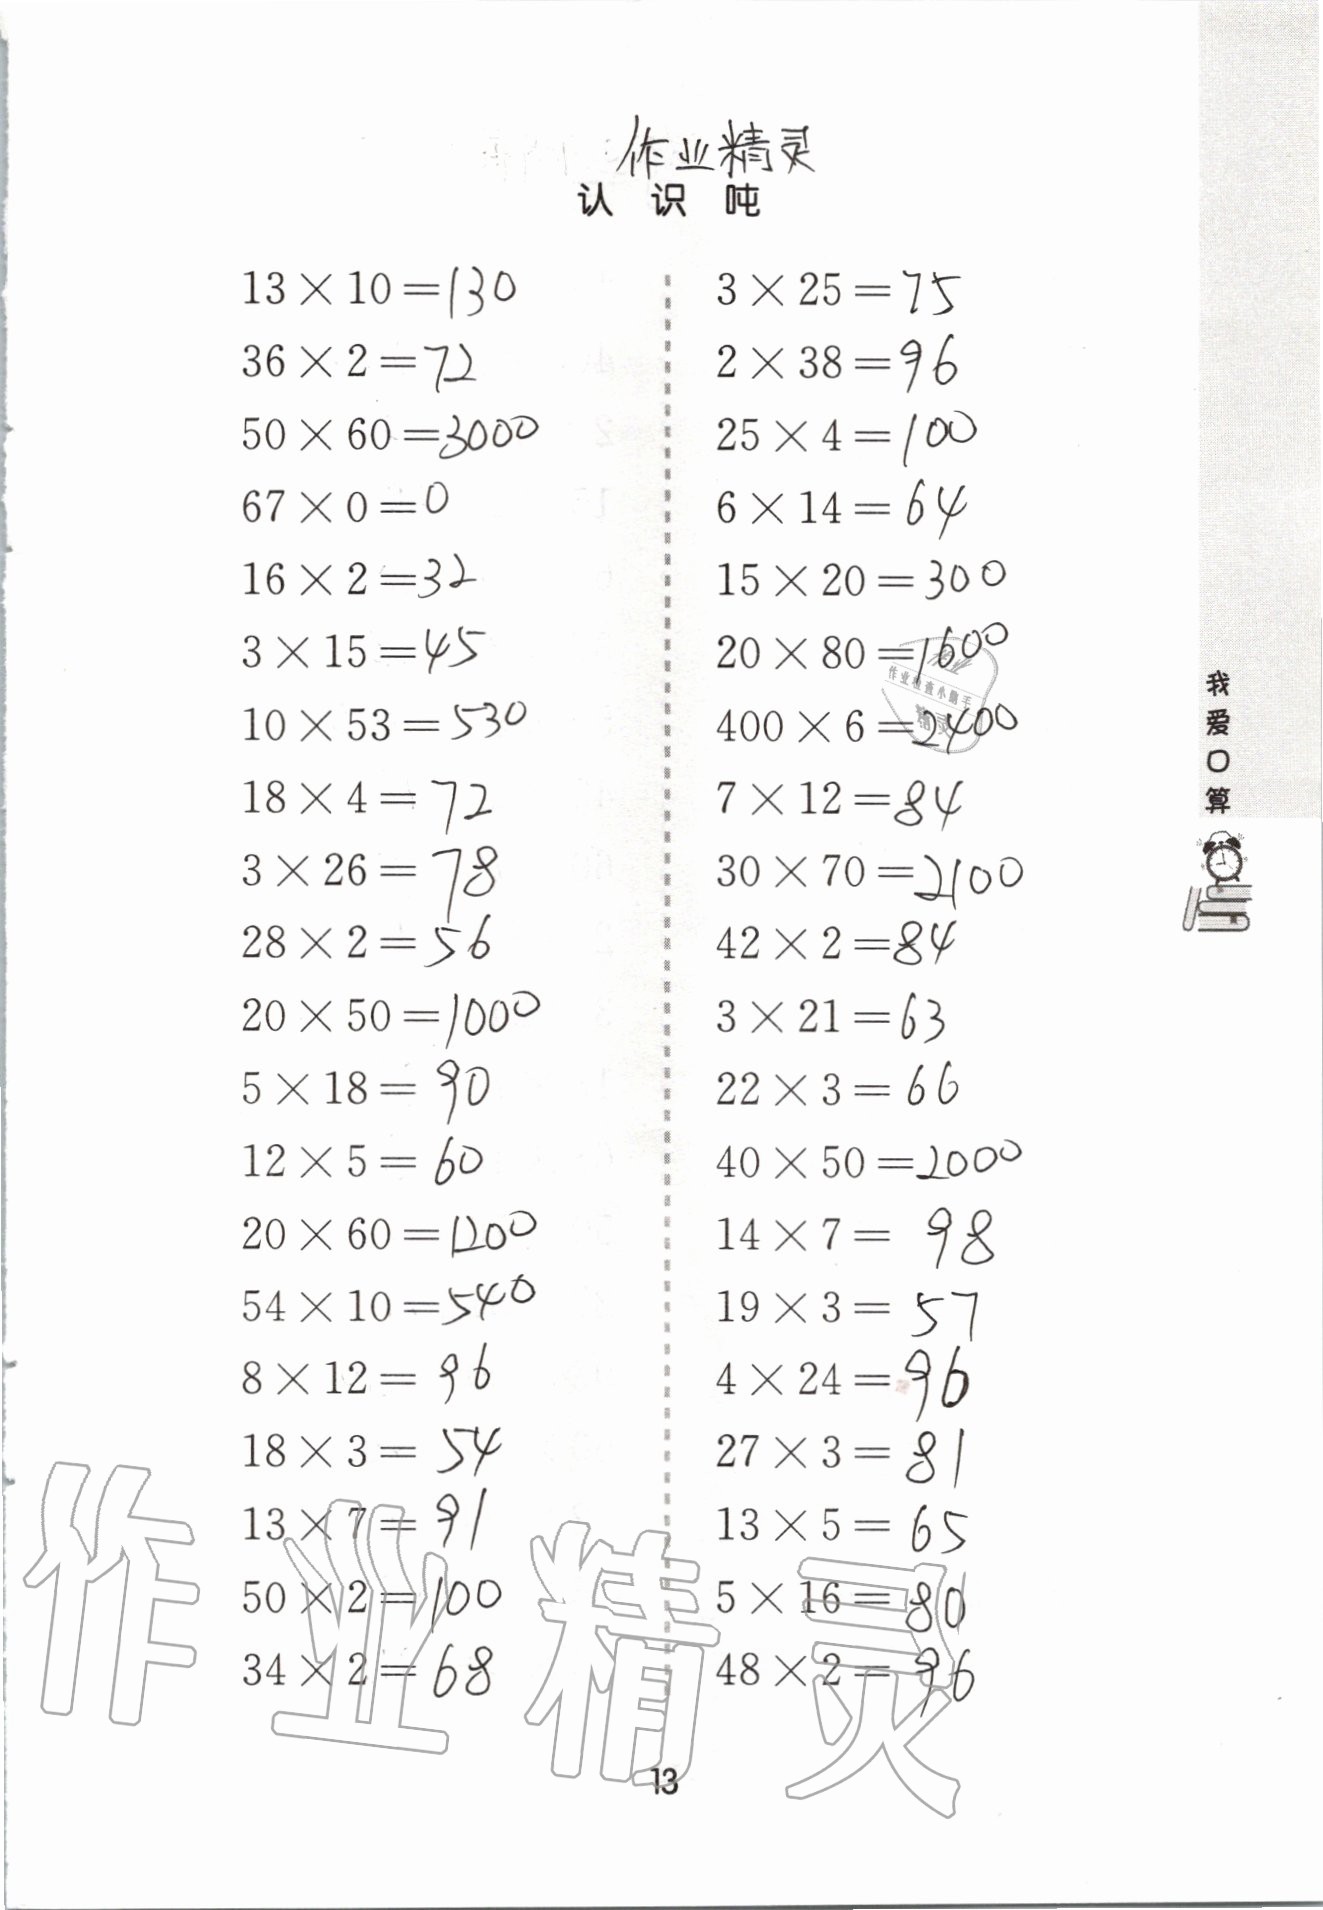 作业精灵
认识吨
13×10=130
36×2=72
50×60=3000
67×0=0
16×2=32
3×15=45
10×53=530
18×4=72
3×26=78
28×2=56
20×50=1000
5×18=90
12×5=60
20×60=1200
54×10=540
8×12=96
18×3=54
13×7=91
50×2=100
34×2=68
3×25=75
2×38=96
25×4=100
6×14=64
15×20=300
20×80=1600
400×6=2400
7×12=84
30×70=2100
42×2=84
3×21=63
22×3=66
40×50=2000
14×7=98
19×3=57
4×24=96
27×3=81
13×5=65
5×16=80
48×2=96
我爱口算
作业检查小助手
精灵
作业精灵
13